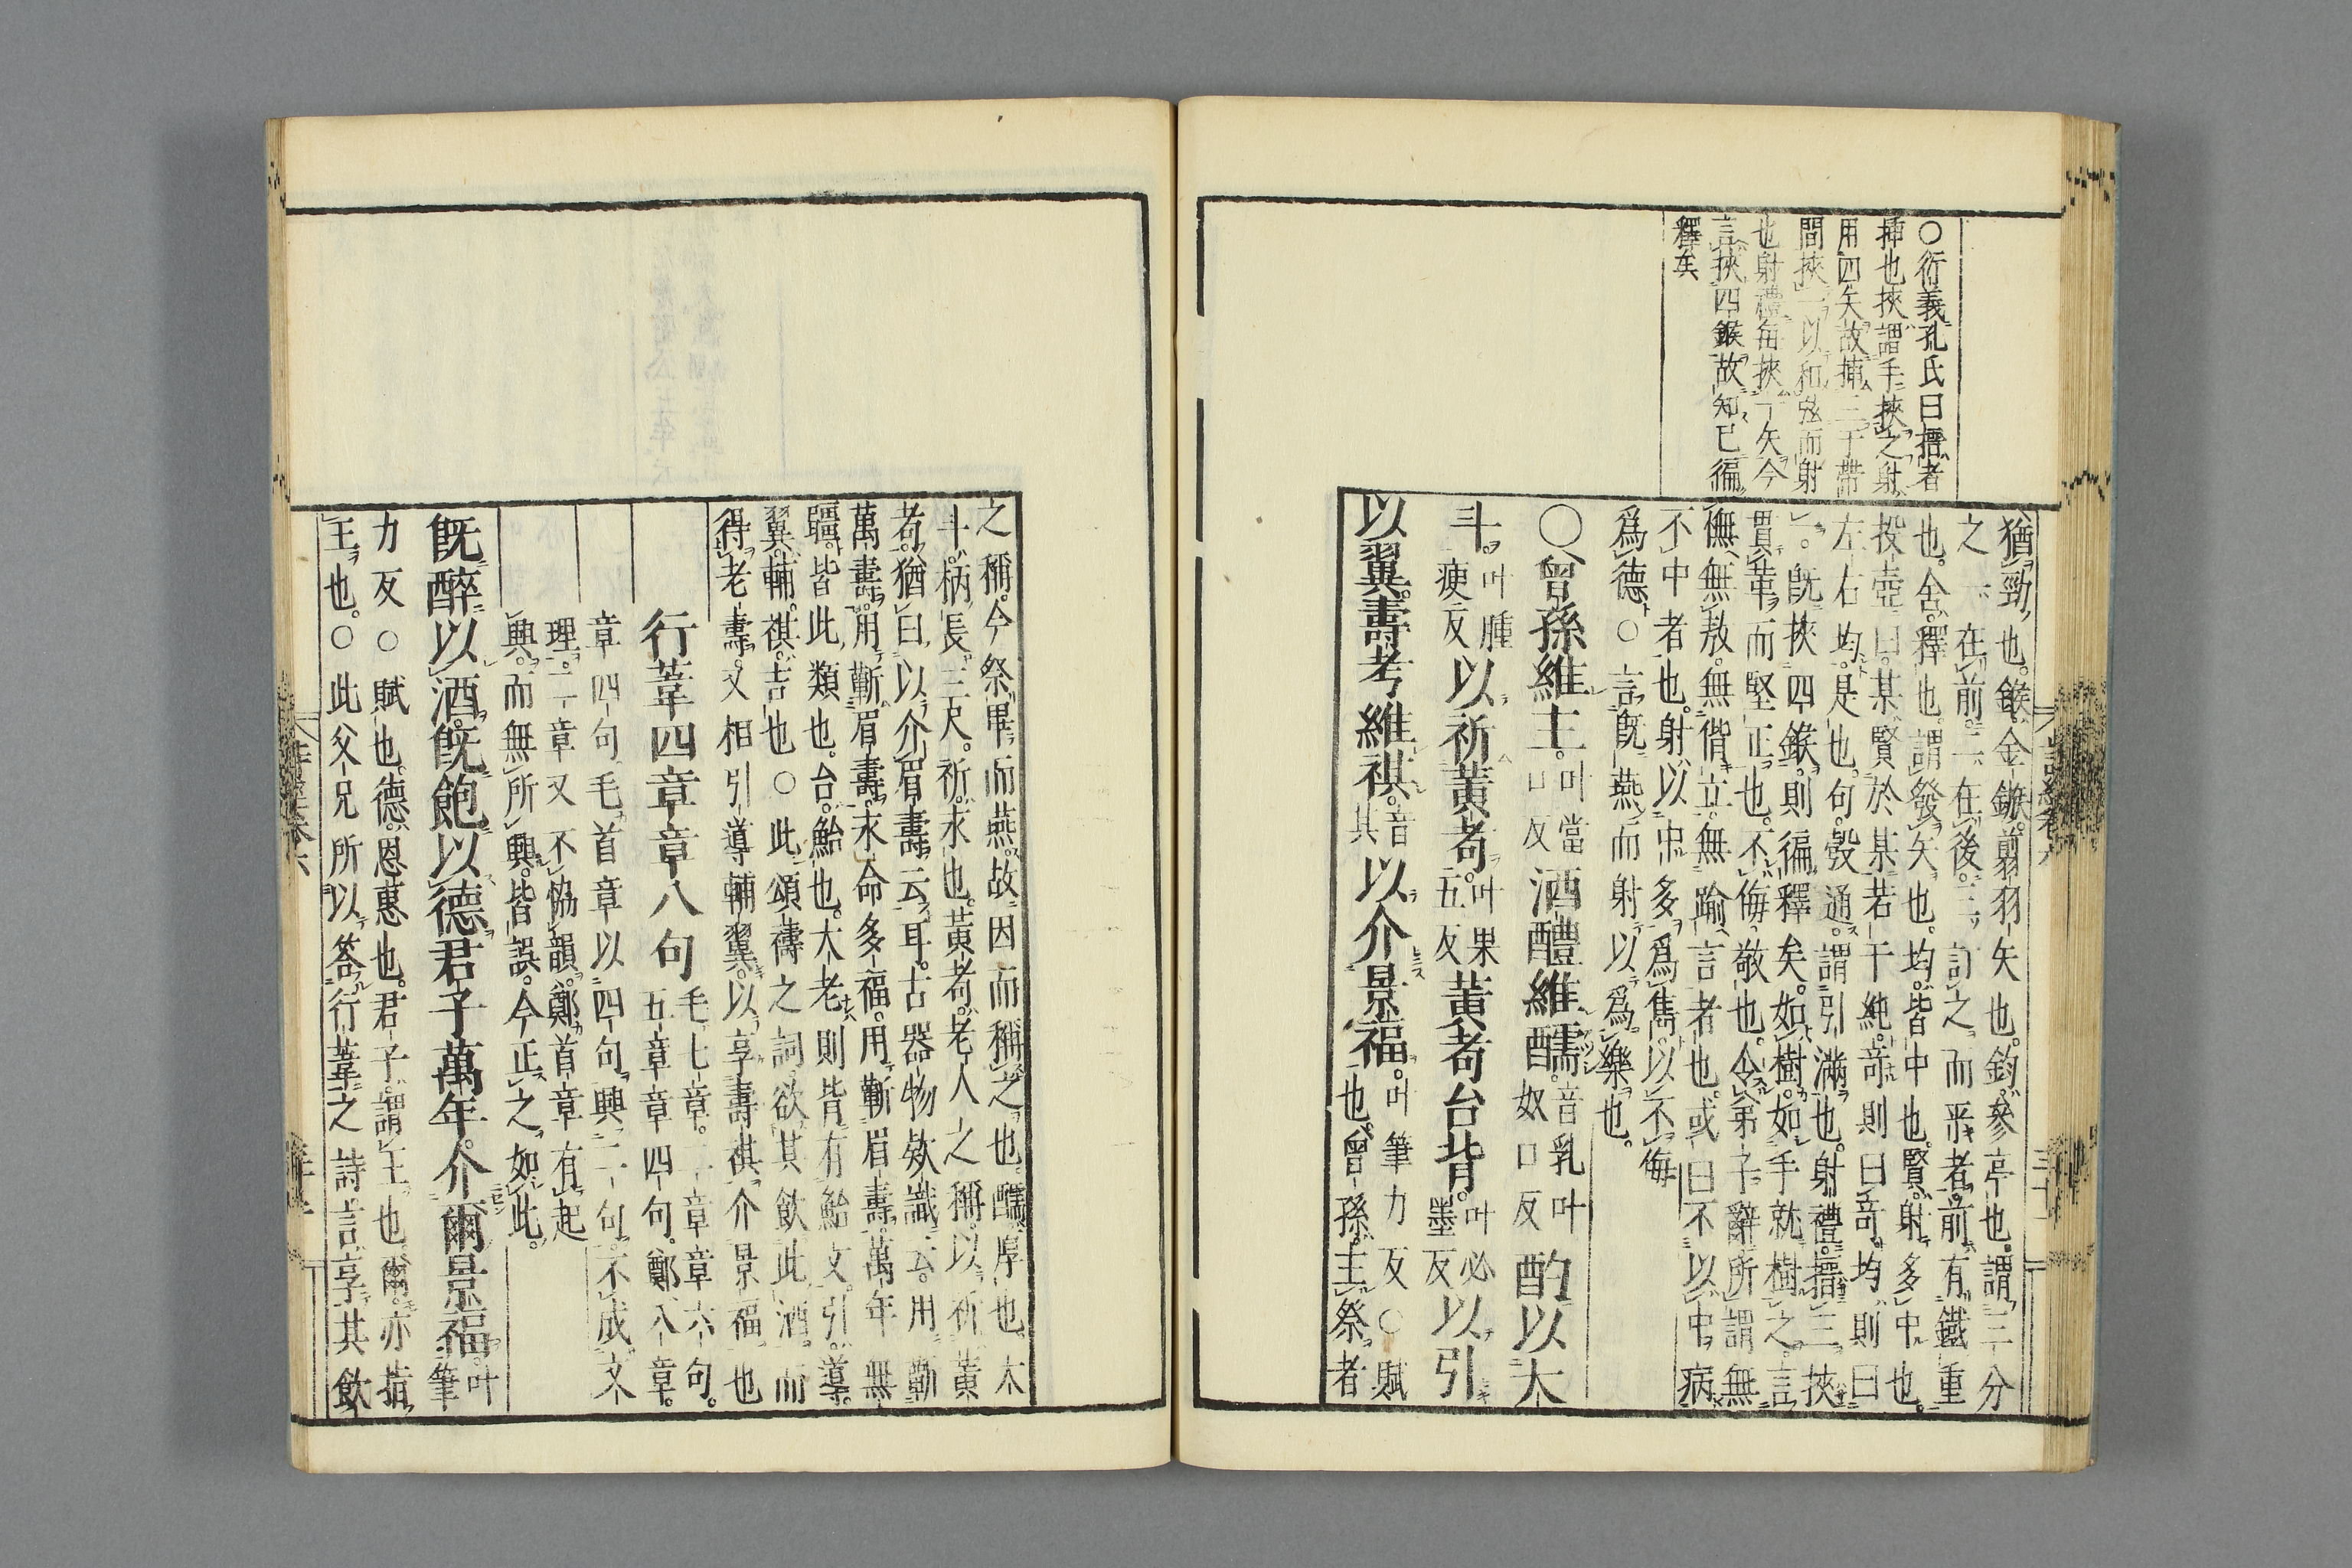 ○衍義孔氏曰搢者
挿也挾謂手挾之射
用四矢故挿三于帶
間挾一以和弦而射
也射禮毎挾一矢今
言挾四鍭故知已徧
釋矣
猶勁也。鍭金鏃翦羽矢也。鈞參亭也。謂三分
之一在前。二在後。三訂之而平者。前有鐵重
也。舍釋也。謂發矢也。均皆中也。賢射多中也。
投壺曰。某賢於某若干純。奇則曰奇。均則曰
左右均。是也。句彀通。謂引滿也。射禮。搢三挾
一。既挾四鍭。則徧釋矣。如樹。如手就樹之。言
貫革而堅正也。不侮。敬也。令弟子辭。所謂無
憮無敖。無偝立。無踰言者也。或曰不以中病
不中者也。射以中多爲雋。以不侮
爲德○言既燕而射以爲樂也。
○曾孫維主。叶當口反酒醴維醹。音乳叶奴口反酌以大
斗。叶腫庾反以祈黃耇。叶果五反黃耇台背。叶必墨反以引
以翼。壽考維祺。音其以介景福。叶筆力反○賦也。曾孫。主祭者
之稱。今祭畢而燕。故因而稱之也。醹厚也。大
斗。柄長三尺。祈求也。黃耇。老人之稱。以祈黃
耇。猶曰以介眉壽云耳。古器物款識云。用蘄
萬壽。用蘄眉壽。永命多福。用蘄眉壽。萬年無
疆。皆此類也。台。鮐也。大老則背有鮐文。引導。
翼輔。祺吉也○此頌禱之詞。欲其飲此酒而
得老壽。又相引導輔翼。以享壽祺。介景福也
行葦四章章八句毛七章。二章章六句。五章章四句。鄭八章。
章四句。毛首章以四句興二句。不成文
理。二章又不協韻。鄭首章有起
興。而無所興。皆誤。今正之如此。
既醉以酒。既飽以德。君子萬年。介爾景福。叶筆
力反○賦也。德。恩惠也。君子謂王也。爾亦指
王也。○此父兄所以答行葦之詩。言享其飲